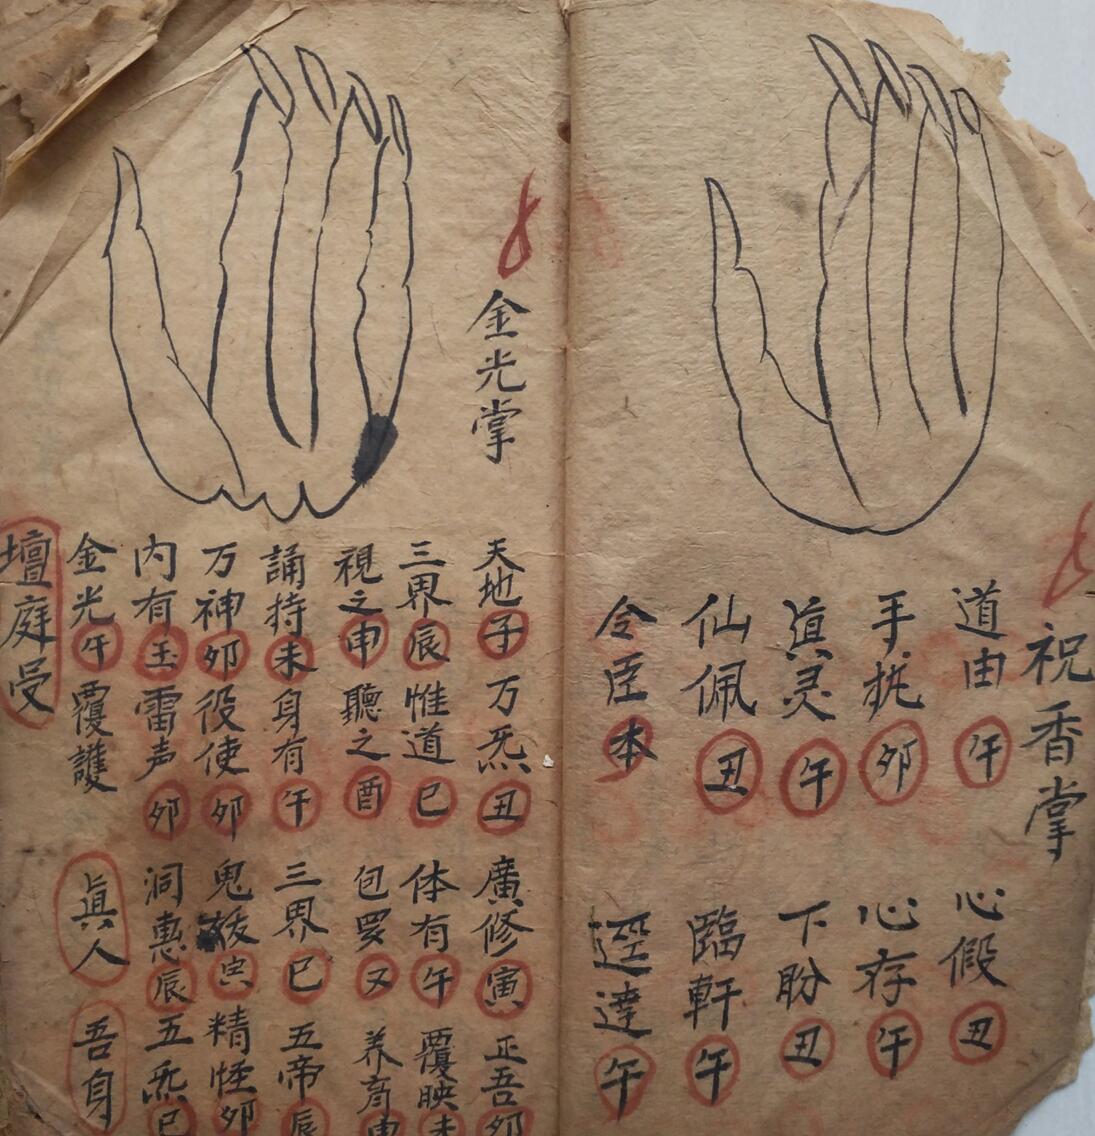 祝香掌
道由午 心假丑
手扰卯 心存午
真灵午 下盼丑
仙佩丑 臨軒午
令臣本 逕達午
金光掌
天地子 万炁丑 廣修寅 正吾卯
三界辰 惟道巳 体有午 覆映未
視之申 聽之酉 包罗又 养育申
誦持未 身有午 三界巳 五帝辰
万神卯 役使卯 鬼妖寅 精怪卯
内有玉 雷声卯 洞惠辰 五炁巳
金光午 覆護 真人
壇庭受 吾身